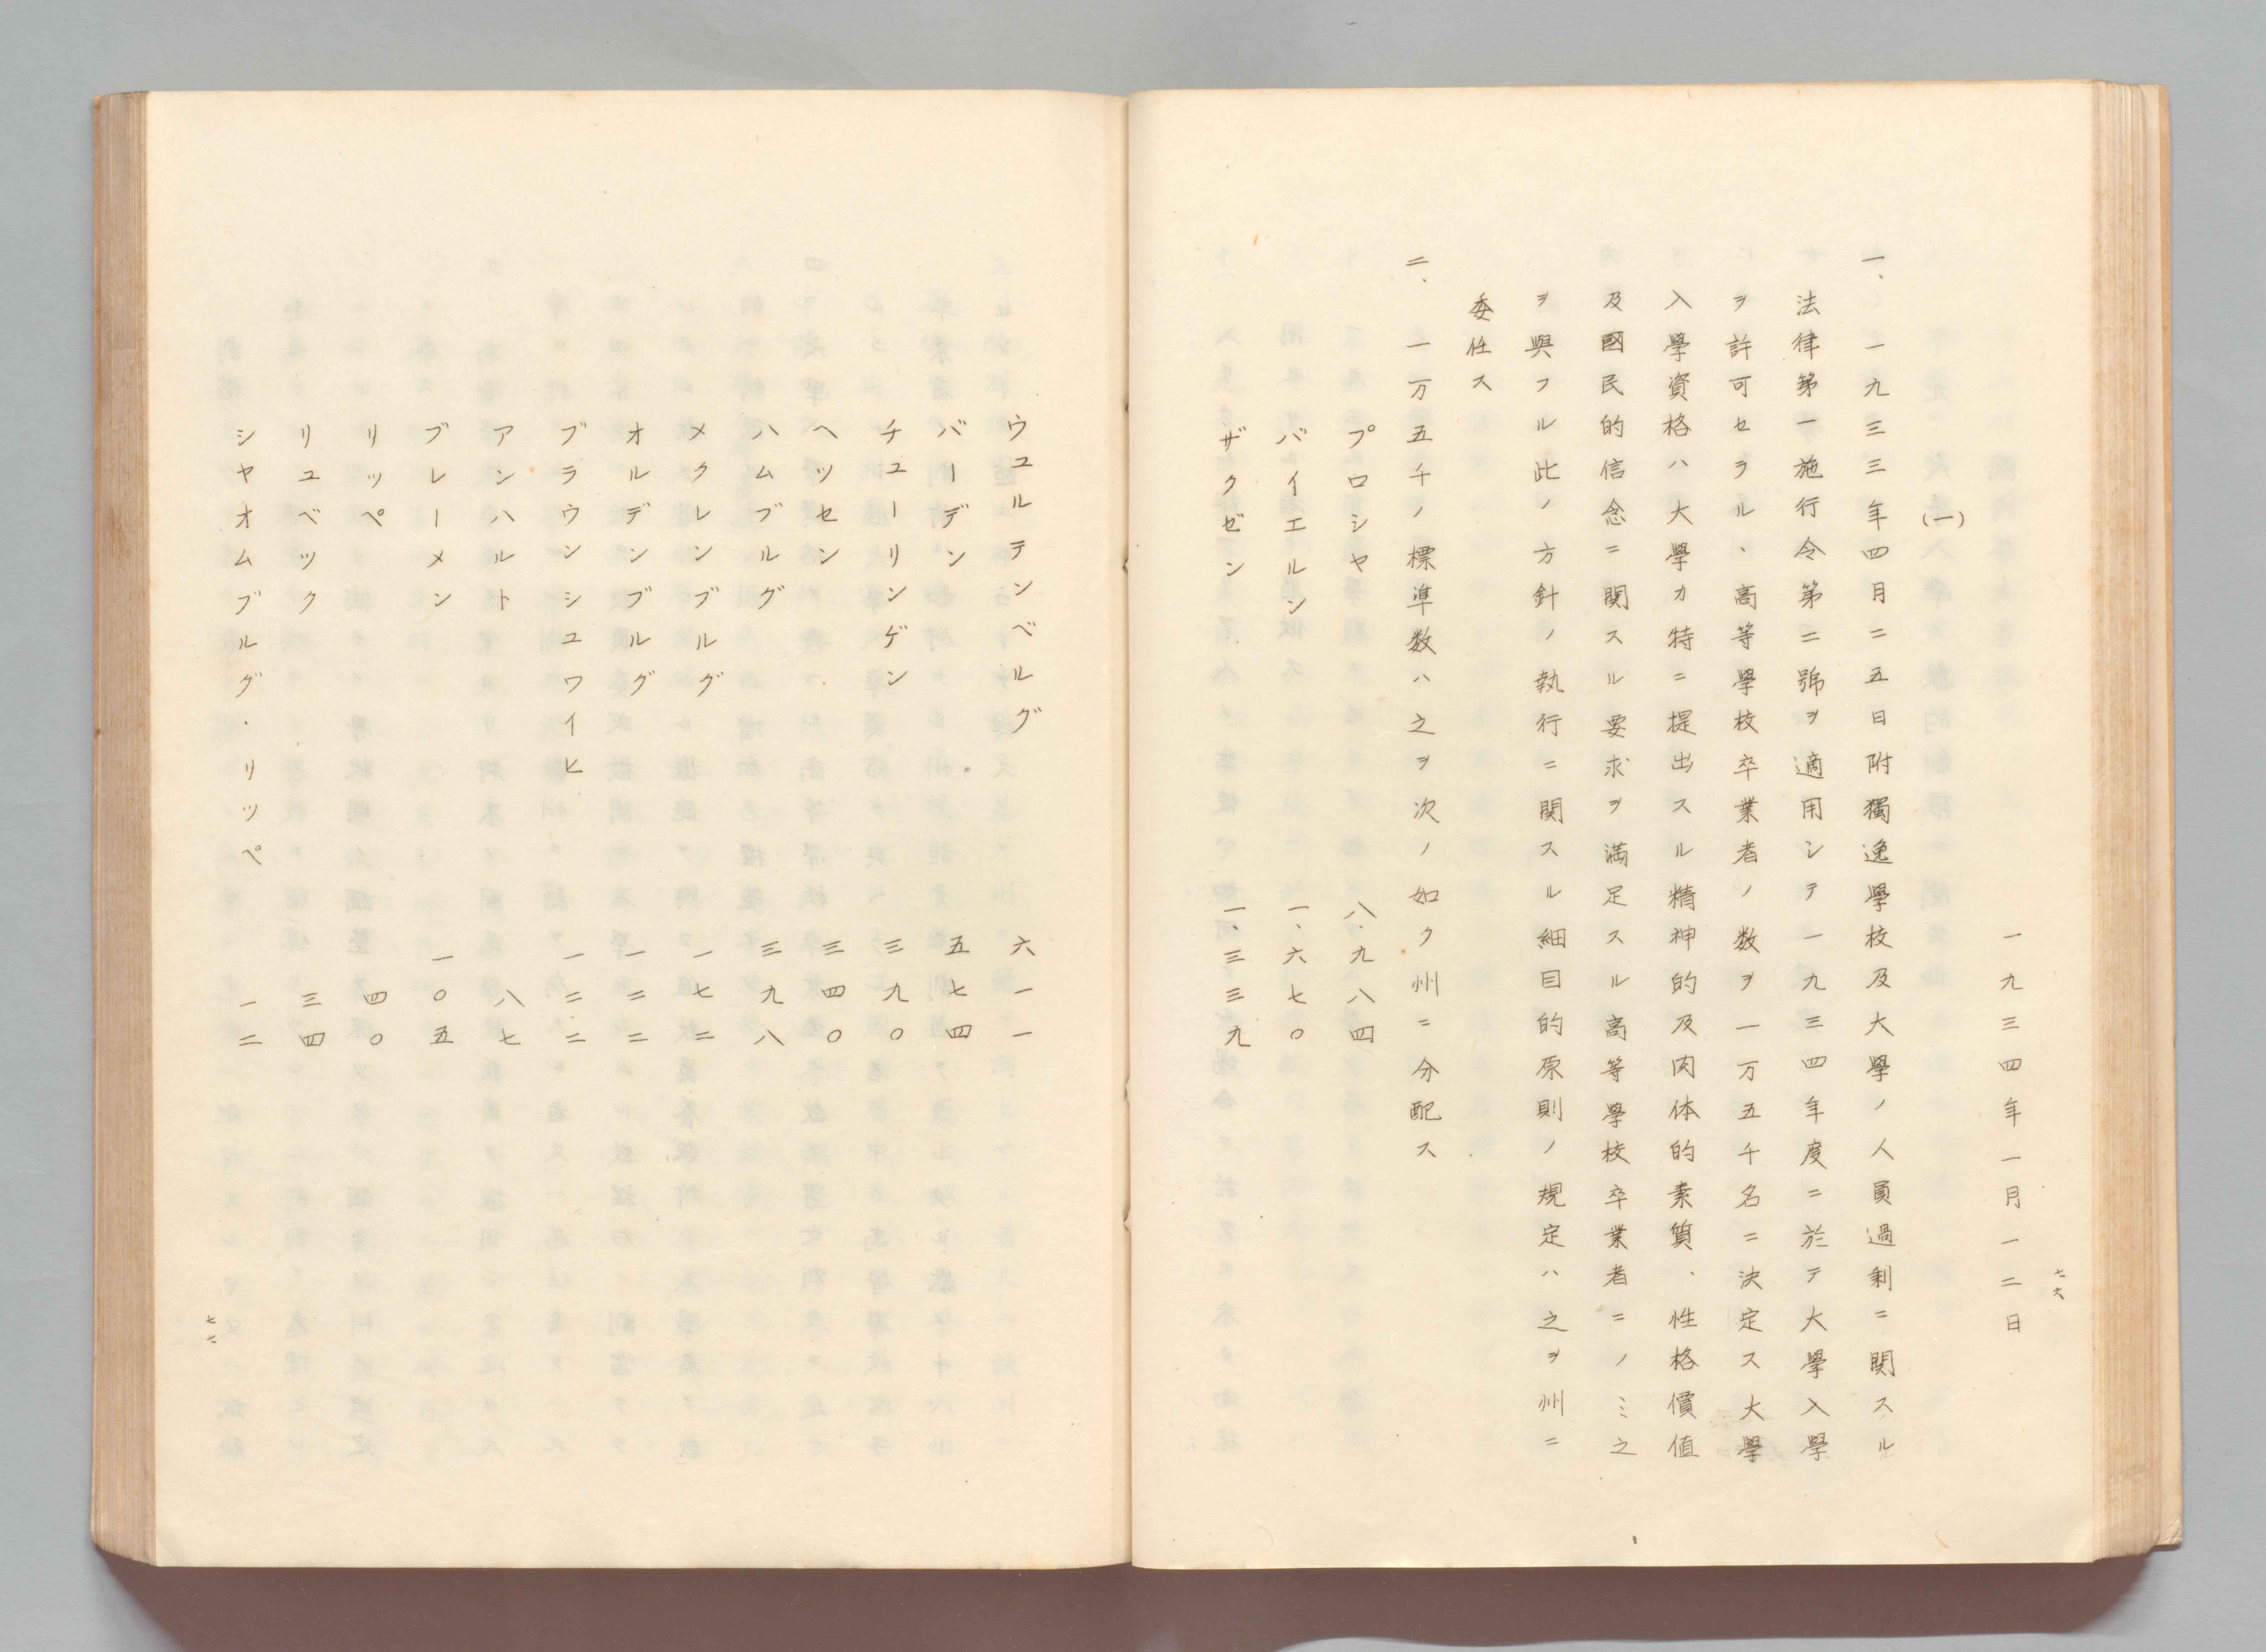 七六
一九三四年一月一二日
(一)
一、一九三三年四月二五日附獨逸學校及大學ノ人員過剰ニ関スル
法律第一施行令第二號ヲ適用シテ一九三四年度ニ於テ大學入學
ヲ許可セラル、高等學校卒業者ノ数ヲ一万五千名ニ決定ス大學
入學資格ハ大學カ特ニ提出スル精神的及肉体的素質、性格價値
及國民的信念ニ関スル要求ヲ満足スル高等學校卒業者ニノミ之
ヲ與フル此ノ方針ノ執行ニ関スル細目的原則ノ規定ハ之ヲ州ニ
委任ス
二、一万五千ノ標準数ハ之ヲ次ノ如ク州ニ分配ス
プロシヤ 八、九八四
バイエルン 一、六七〇
ザクゼン 一、三三九
ウユルテンベルグ 六一一
バーデン 五七四
チユーリンゲン 三九〇
ヘツセン 三四〇
ハムブルグ 三九八
メクレンブルグ 一七二
オルデンブルグ 一二二
ブラウンシユワイヒ 一二二
アンハルト 八七
ブレーメン 一〇五
リツペ 四〇
リユベツク 三四
シヤオムブルグ・リツペ 一二